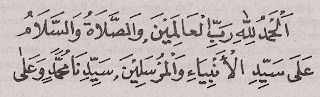 اَلْحَمْدُ لِلّٰهِ رَبِّ الْعَالَمِيْنَ، وَالصَّلَاةُ وَالسَّلَامُ
عَلَى سَيِّدِ الْأَنْبِيَاءِ وَالْمُرْسَلِيْنَ، سَيِّدِنَا مُحَمَّدٍ وَعَلَى